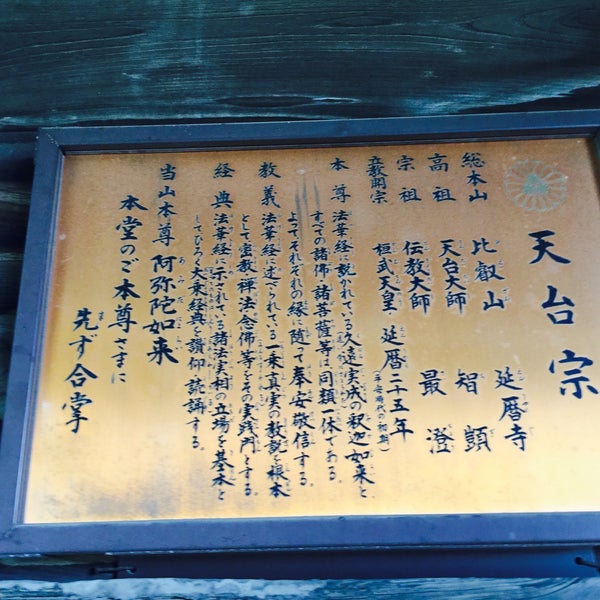 天台宗
総本山 比叡山 延暦寺
高祖 天台大師 智顗
宗祖 伝教大師 最澄
立教開宗 桓武天皇 延暦二十五年
(平安時代の初期)
本尊 法華経に説かれている久遠実成の釈迦如来と
すべての諸佛、諸菩薩等は同類一体である。
よってそれぞれの縁に随って奉安敬信する。
教義 法華経に述べられている一乗真実の教説を根本
として密教、禅法、念佛等をその実践門とする。
経典 法華経に示されている諸法実相の立場を基本と
してひろく大乗経典を讃仰読誦する。
当山本尊 阿弥陀如来
本堂のご本尊さまに
先ず合掌